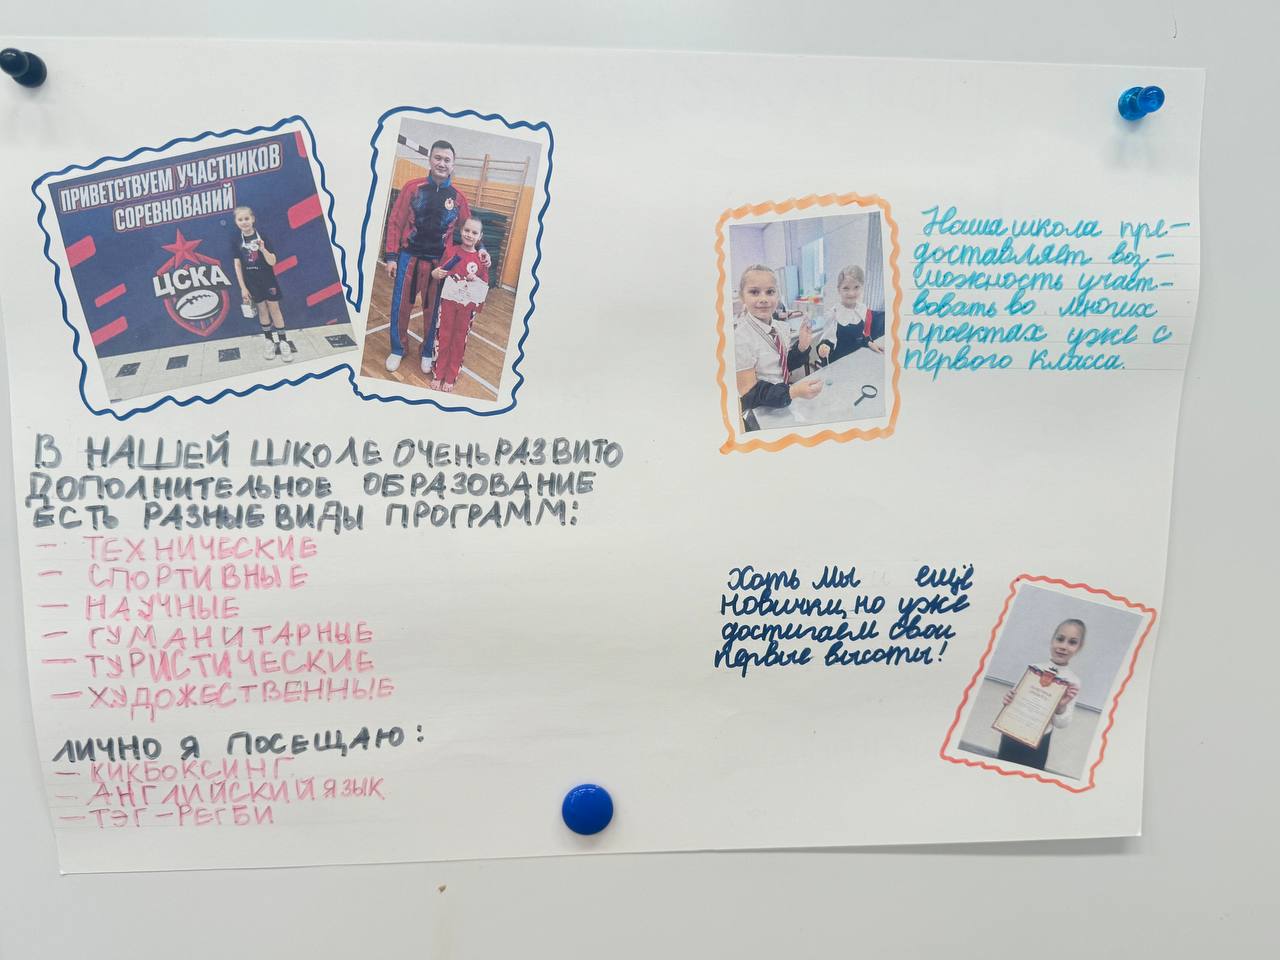 ПРИВЕТСТВУЕМ УЧАСТНИКОВ
СОРЕВНОВАНИЙ
ЦСКА
В НАШЕЙ ШКОЛЕ ОЧЕНЬ РАЗВИТО
ДОПОЛНИТЕЛЬНОЕ ОБРАЗОВАНИЕ
ЕСТЬ РАЗНЫЕ ВИДЫ ПРОГРАММ:
— ТЕХНИЧЕСКИЕ
— СПОРТИВНЫЕ
— НАУЧНЫЕ
— ГУМАНИТАРНЫЕ
— ТУРИСТИЧЕСКИЕ
— ХУДОЖЕСТВЕННЫЕ
ЛИЧНО Я ПОСЕЩАЮ:
— КИКБОКСИНГ
— АНГЛИЙСКИЙ ЯЗЫК
— ТЭГ-РЕГБИ
Наша школа пре-
доставляет воз-
можность участ-
вовать во многих
проектах уже с
первого класса.
Хоть мы ещё
новички, но уже
достигаем свои
первые высоты!